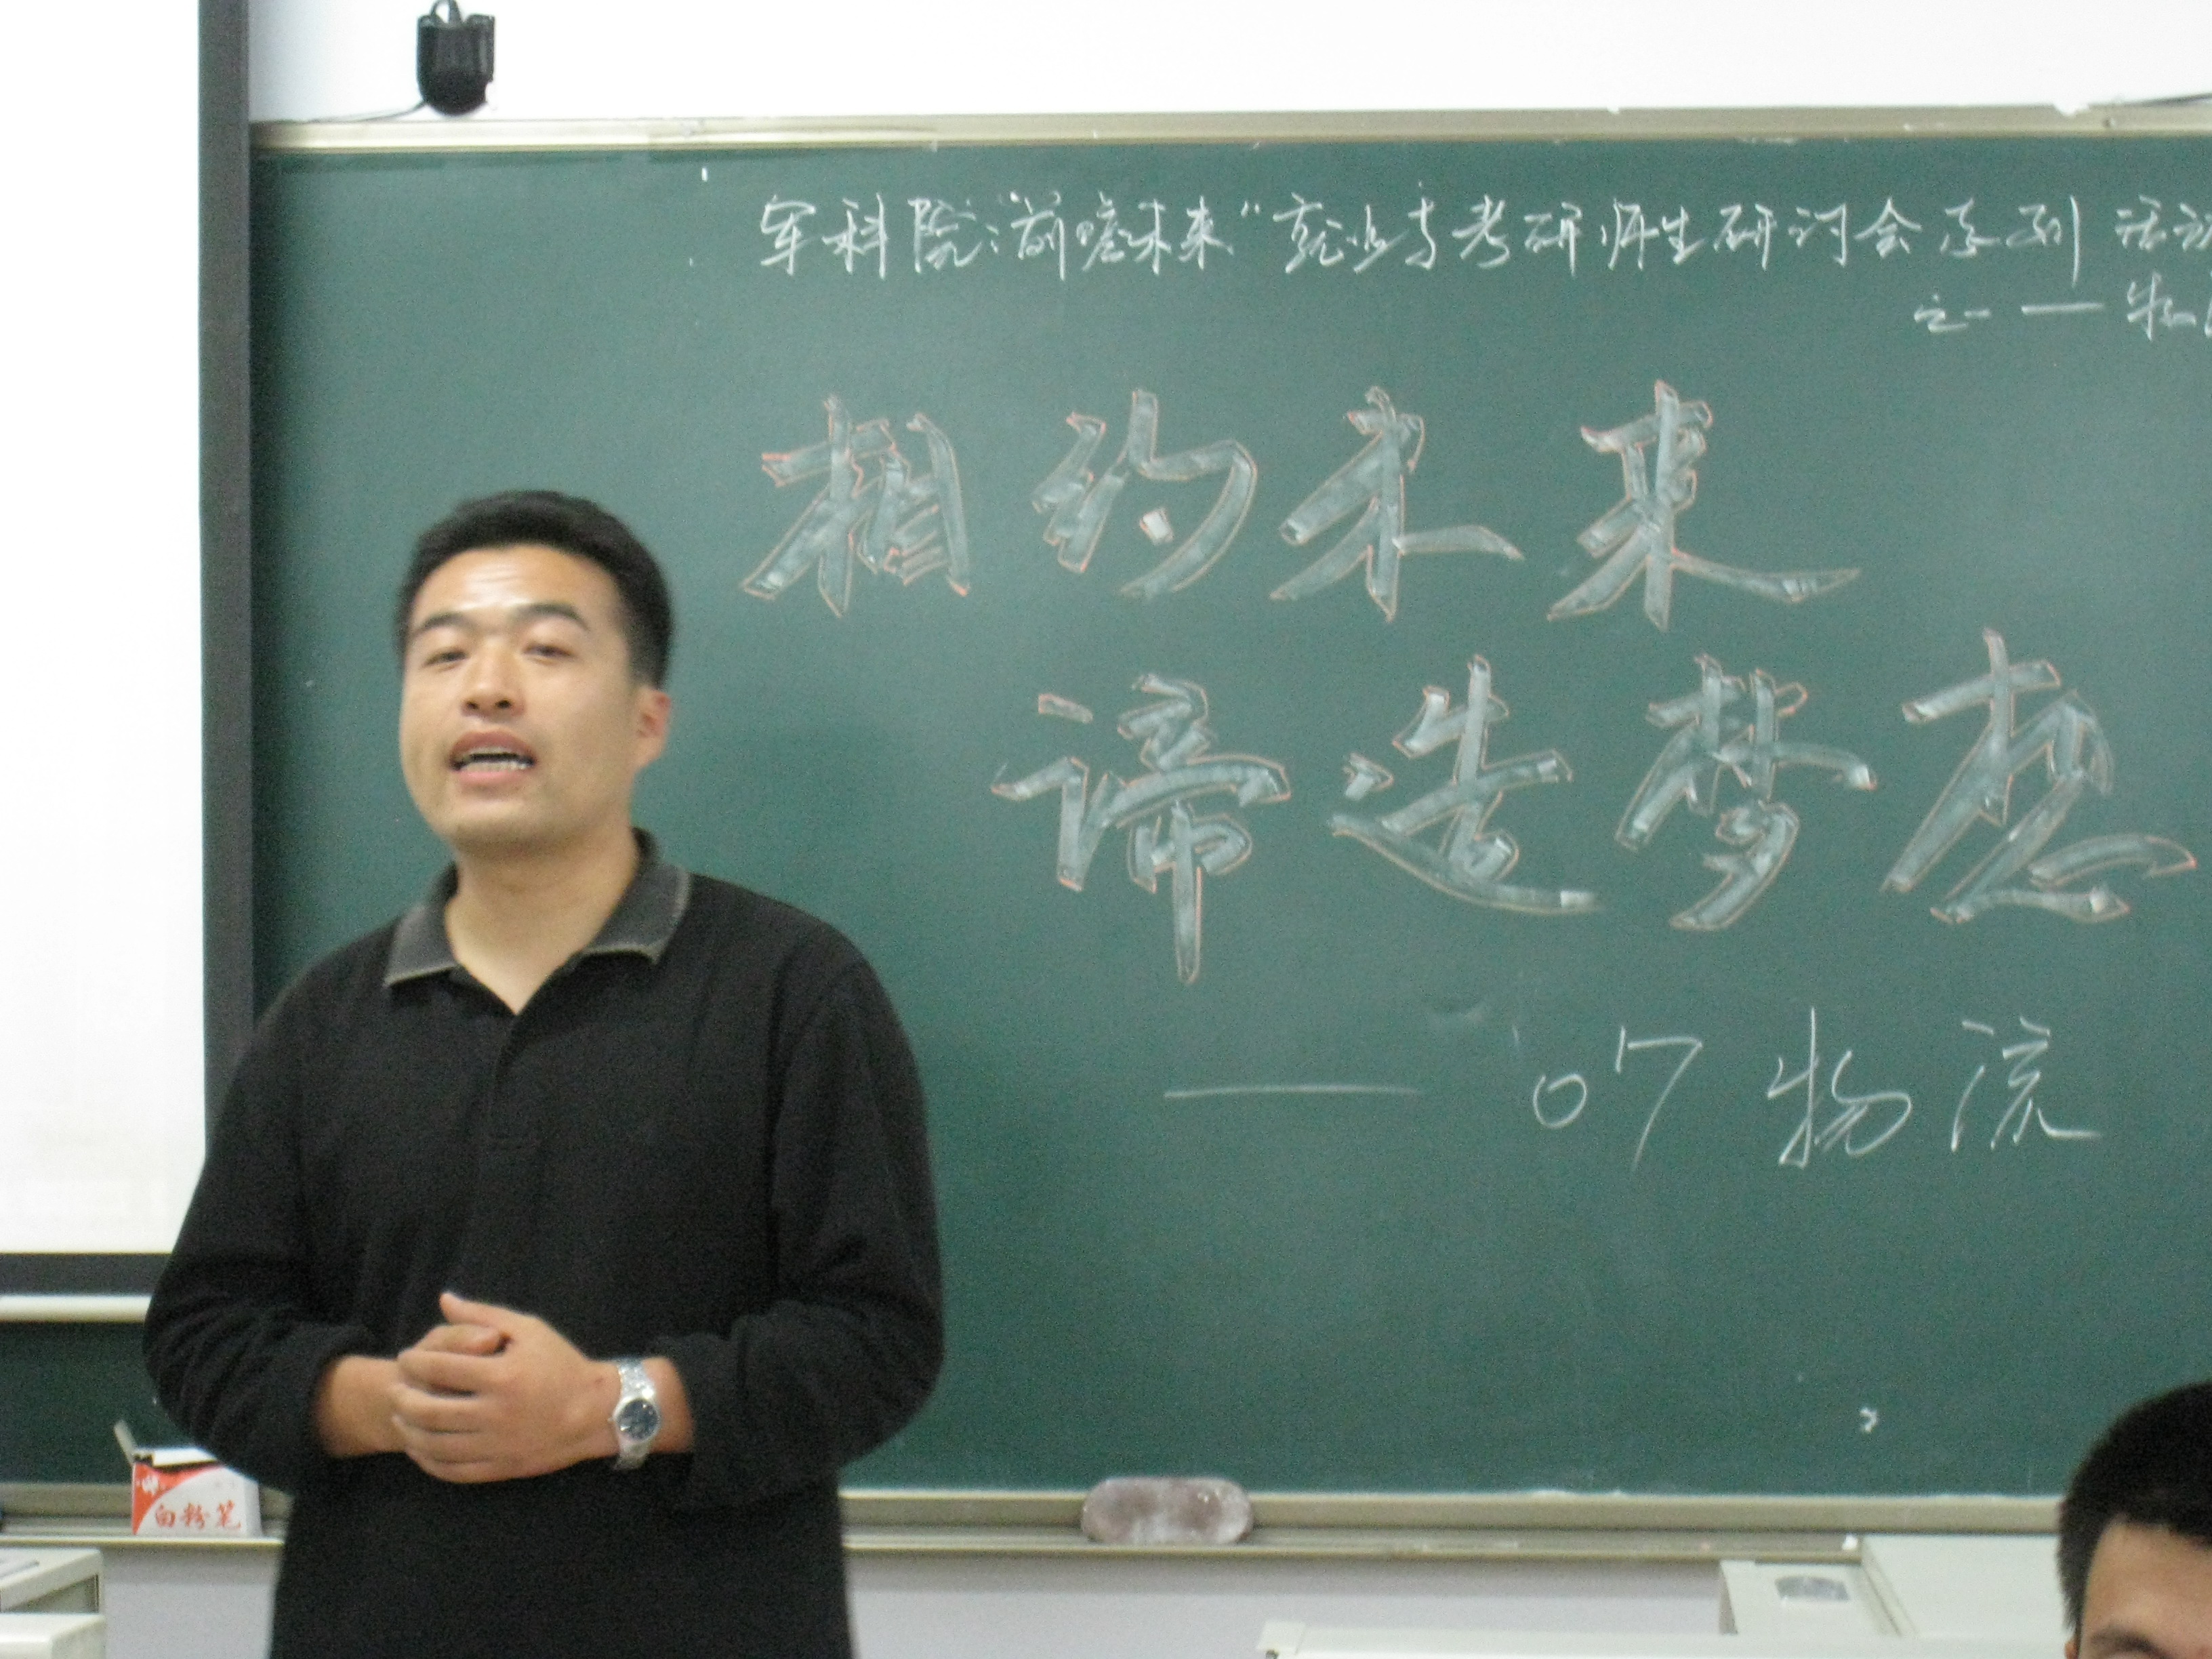 军科院："前瞻未来"就业与考研师生研讨会系列活动
之一——物
相约未来
谛造梦想
——07物流
白粉笔